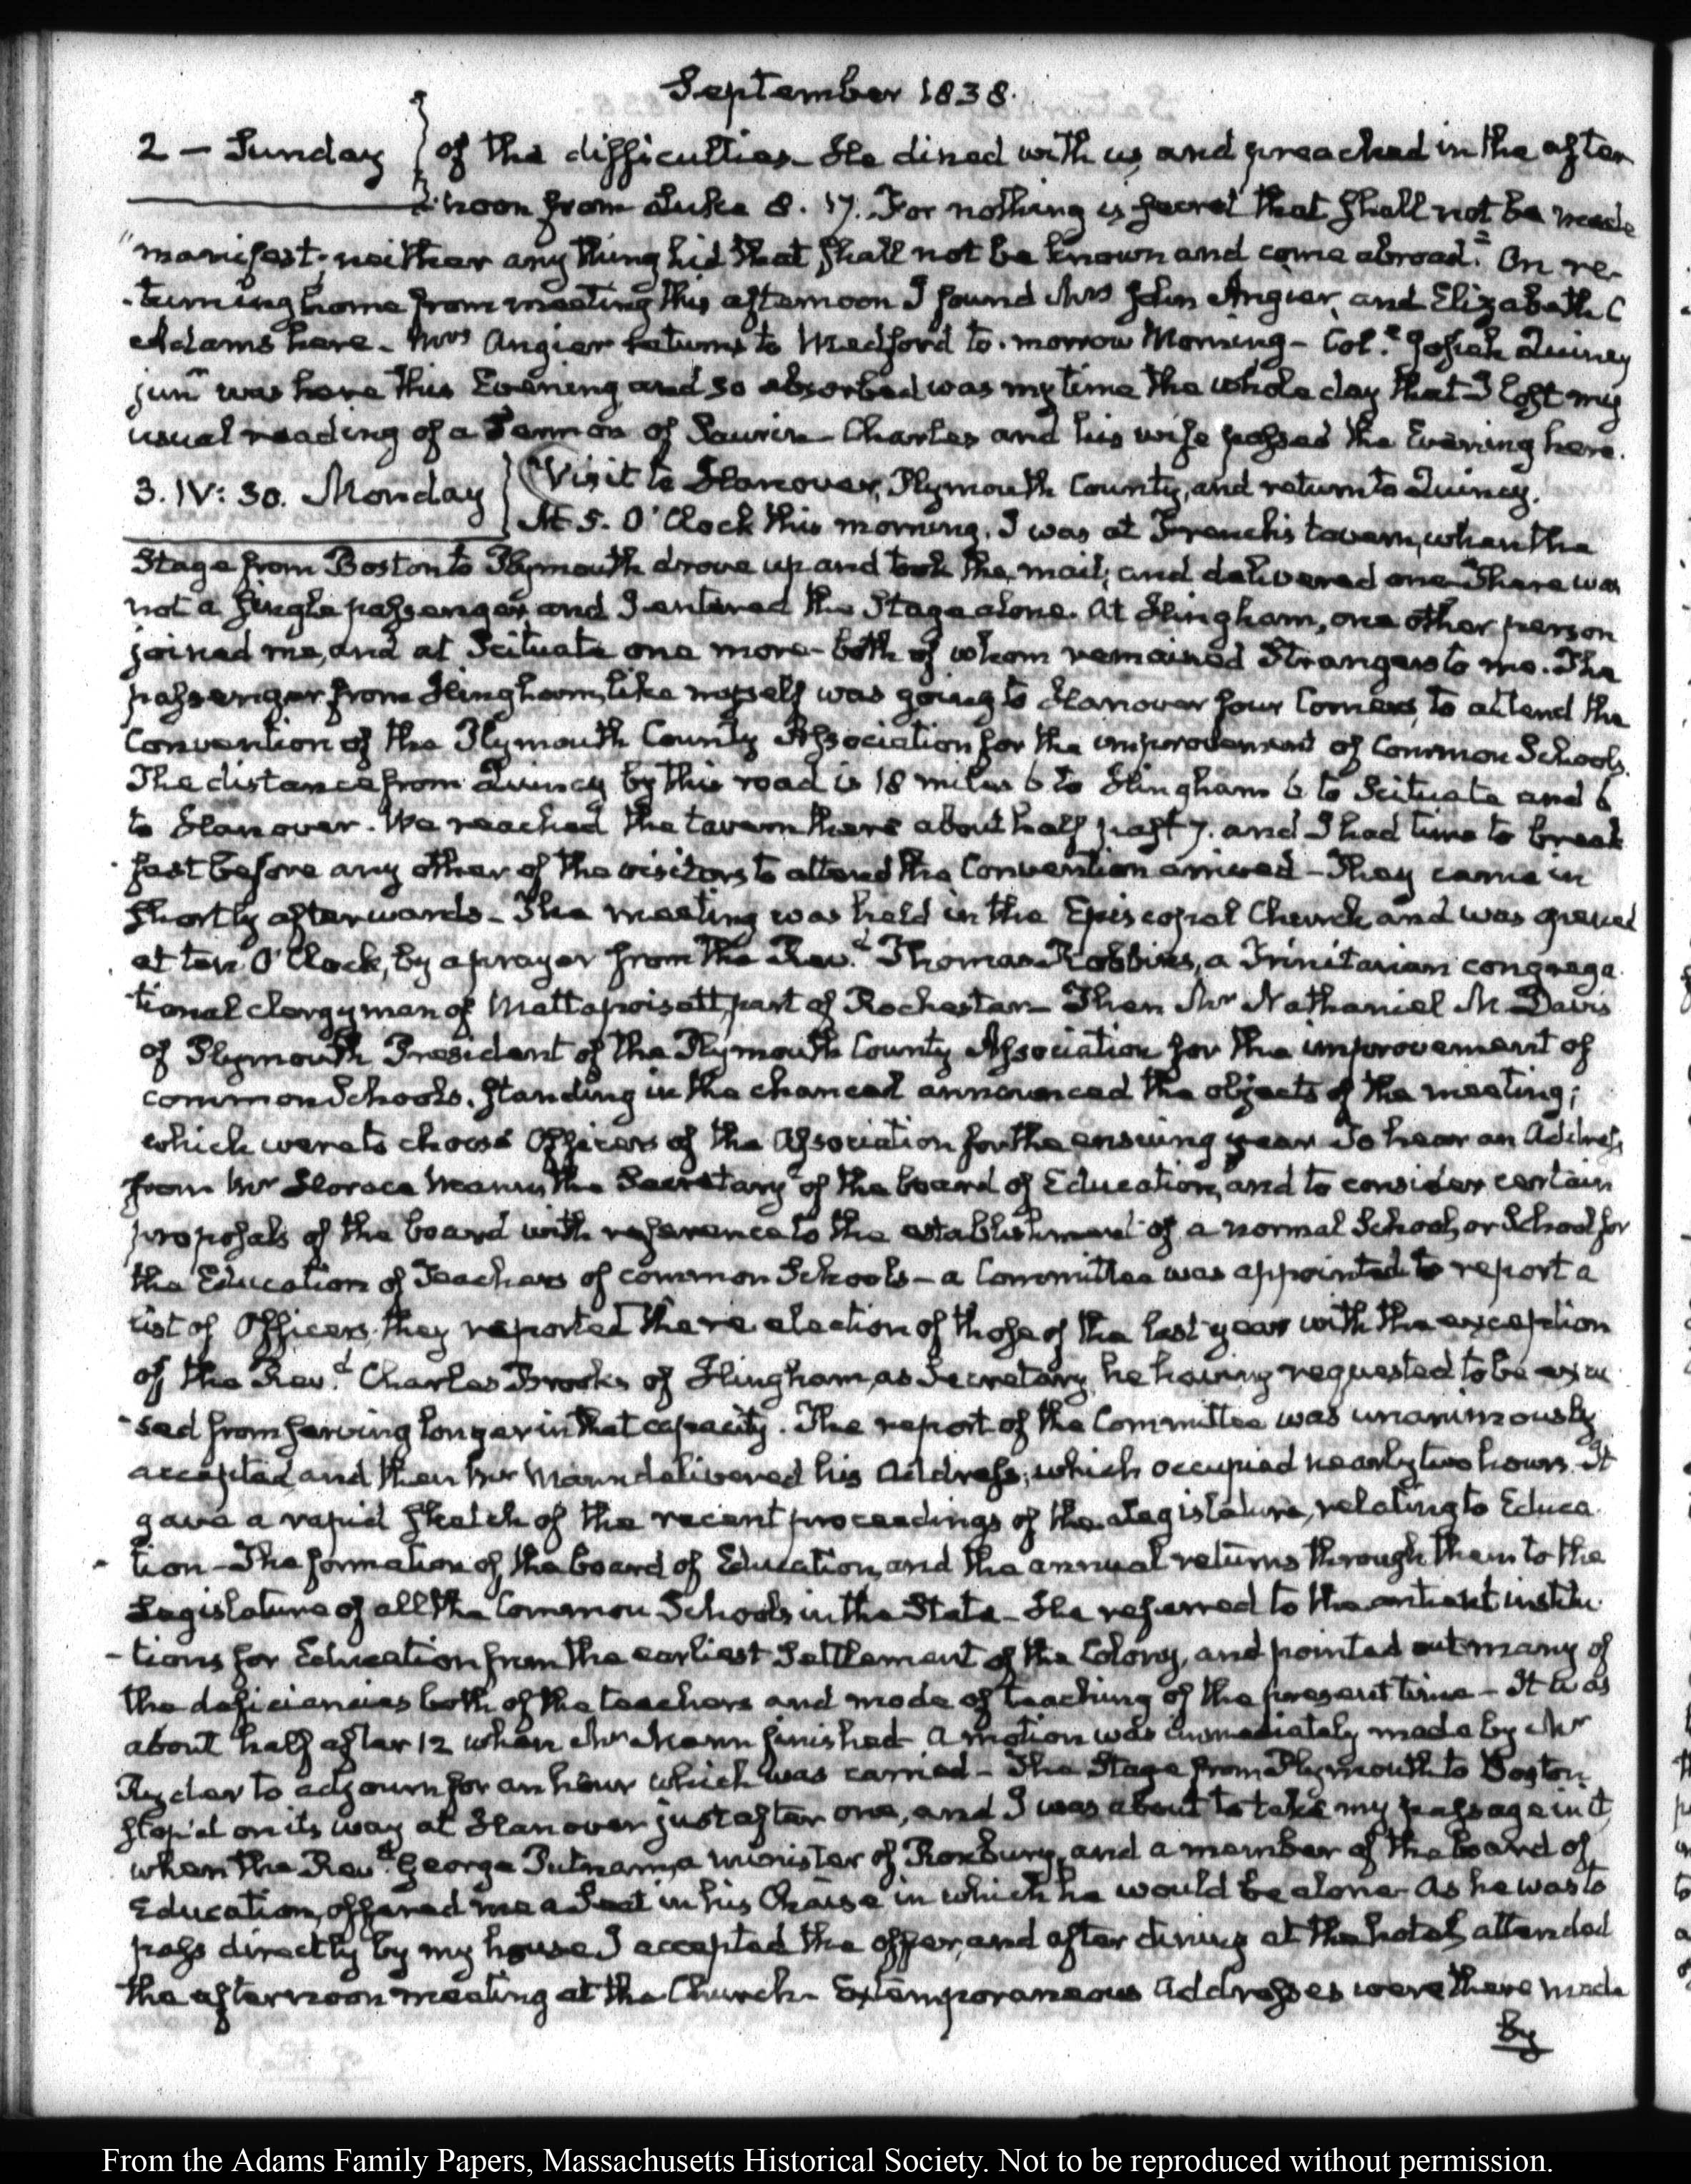 September 1838.
2 - Sunday } of the difficulties - He dined with us, and preached in the after
noon from Luke 8. 17. For nothing is secret that shall not be made
"manifest; neither any thing hid that shall not be known and come abroad." On re-
-turning home from meeting this afternoon I found Mrs John Angier, and Elizabeth C
Adams here - Mrs Angier returns to Medford to-morrow Morning - Col. Josiah Quincy
junr was here this Evening and so absorbed was my time the whole day that I lost my
usual reading of a Sermon of Saurin - Charles and his wife passed the Evening here.
3. IV: 30. Monday } Visit to Hanover, Plymouth County, and return to Quincy.
At 5. O'Clock this morning, I was at French's tavern, when the
Stage from Boston to Plymouth drove up and took the mail, and delivered one - There was
not a single passenger, and I entered the Stage alone. At Hingham, one other person
joined me, and at Scituate one more - both of whom remained Strangers to me. The
passenger from Hingham, like myself was going to Hanover four Corners, to attend the
Convention of the Plymouth County Association for the improvement of Common Schools.
The distance from Quincy by this road is 18 miles 6 to Hingham 6 to Scituate and 6
to Hanover. We reached the tavern there about half past 7. and I had time to break
fast before any other of the visitors to attend the Convention arrived - They came in
shortly afterwards - The meeting was held in the Episcopal Church and was opened
at ten O'Clock, by a prayer from the Revd. Thomas Robbins, a Trinitarian congrega
tional clergyman of Mattapoisett, part of Rochester - Then Mr Nathaniel M Davis
of Plymouth President of the Plymouth County Association for the improvement of
common Schools, standing in the chancel announced the objects of the meeting;
which were to choose Officers of the Association for the ensuing year to hear an Address
from Mr Horace Mann, the Secretary of the board of Education, and to consider certain
proposals of the board with reference to the establishment of a normal School, or School for
the Education of Teachers of common Schools - a Committee was appointed to report a
list of Officers, they reported the re election of those of the last year with the exception
of the Revd. Charles Brooks of Hingham, as Secretary, he having requested to be excu
-sed from serving longer in that capacity. The report of the Committee was unanimously
accepted and then Mr Mann delivered his Address, which occupied nearly two hours. It
gave a rapid sketch of the recent proceedings of the Legislature, relating to Educa
tion - The formation of the board of Education, and the annual returns through them to the
Legislature of all the Common Schools in the State - He referred to the antient institu
-tions for Education from the earliest Settlement of the Colony, and pointed out many of
the deficiencies both of the teachers and mode of teaching of the present time - It was
about half after 12 when Mr Mann finished - a motion was immediately made by Mr
Ryder to adjourn for an hour which was carried - The Stage from Plymouth to Boston,
stop'd on its way at Hanover just after one, and I was about to take my passage in it,
when the Revd. George Putnam, a minister of Roxbury, and a member of the board of
Education, offered me a Seat in his Chaise in which he would be alone - As he was to
pass directly by my house I accepted the offer, and after dining at the hotel, attended
the afternoon meeting at the Church - Extemporaneous Addresses were there made
by
From the Adams Family Papers, Massachusetts Historical Society. Not to be reproduced without permission.